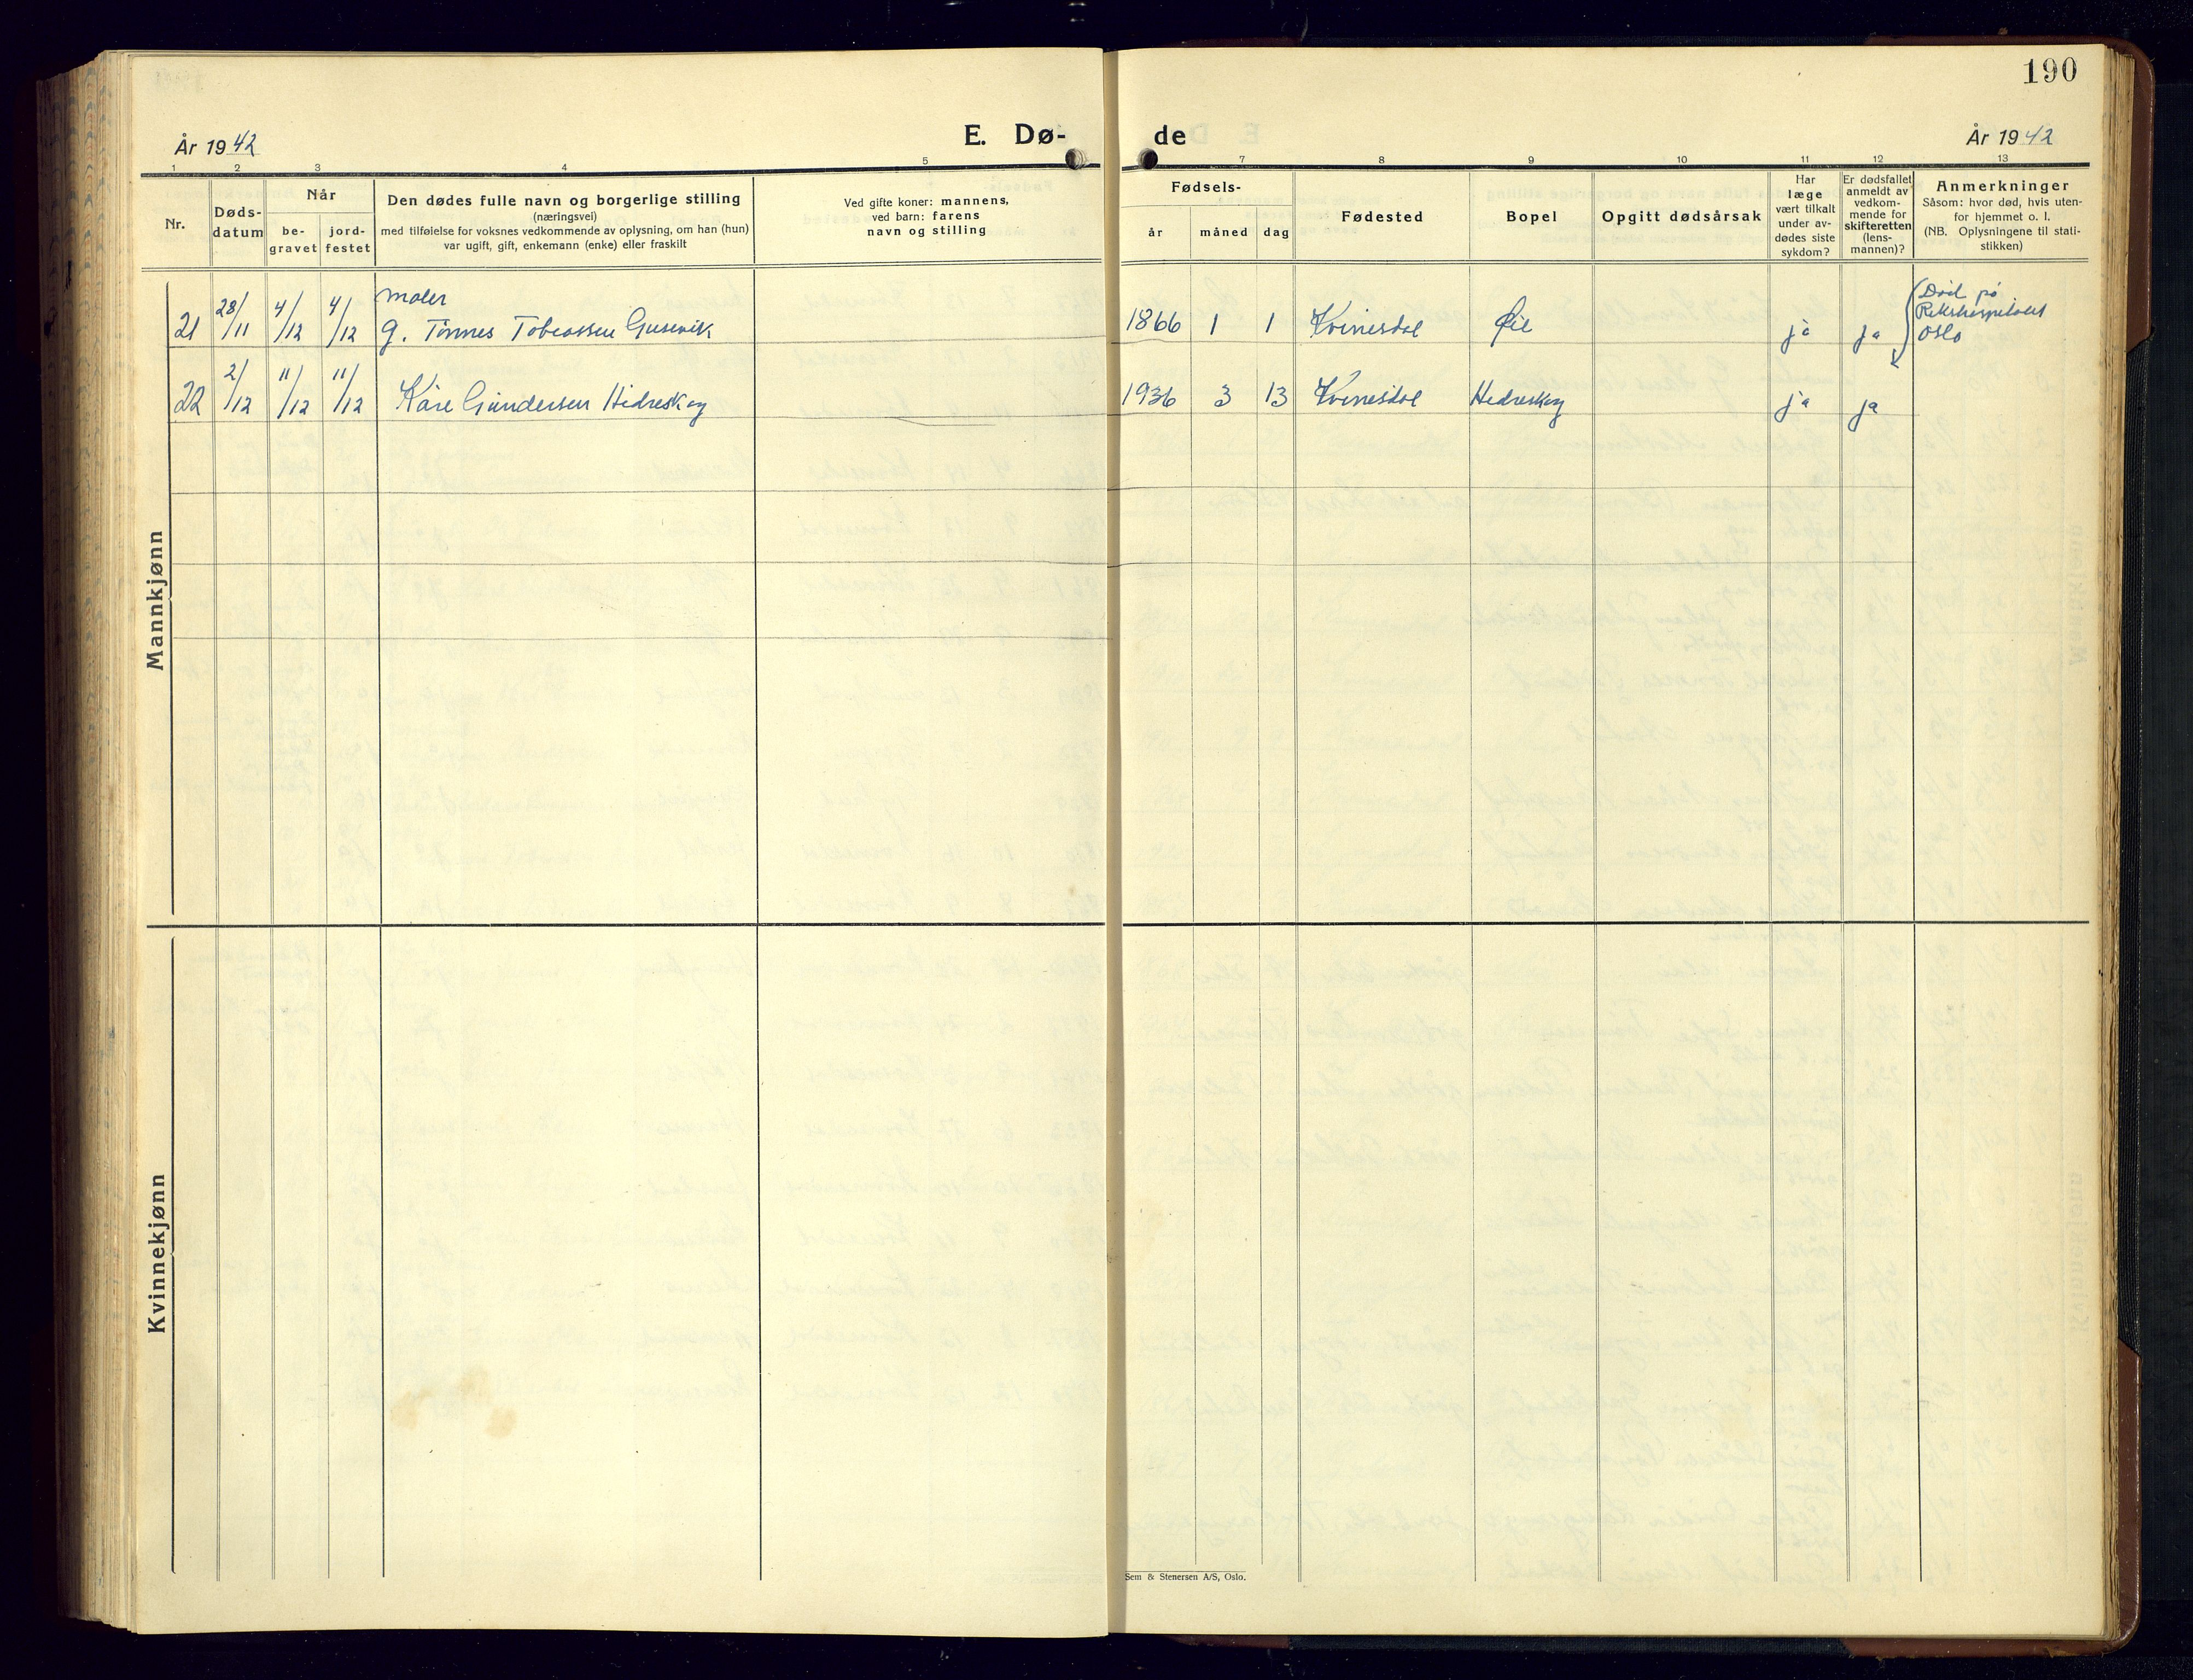 190
År 1942
E. Dø-
de
År 1942
1 2 3 4 5 7 8 9 10 11 12 13
Nr.
Døds-
datum
Når
be-
gravet
jord-
festet
Den dødes fulle navn og borgerlige stilling
(næringsvei)
med tilføielse for voksnes vedkommende av oplysning, om han (hun)
var ugift, gift, enkemann (enke) eller fraskilt
Ved gifte koner: mannens,
ved barn: farens
navn og stilling
Fødsels-
år måned dag
Fødested
Bopel
Opgitt dødsårsak
Har
læge
vært tilkalt
under av-
dødes siste
sykdom?
Er dødsfallet
anmeldt av
vedkom-
mende for
skifteretten
(lens-
mannen)?
Anmerkninger
Såsom: hvor død, hvis uten-
for hjemmet o. l.
(NB. Oplysningene til stati-
stikken)
Mannkjønn
maler
21 28/11 4/12 4/12 g. Tønnes Tobiassen Gusevik 1866 1 1 Kvinesdal Øie ja ja
Død på
Rikshospitalet
Oslo
22 2/12 11/12 11/12 Kåre Gundersen Hidreskog 1936 3 13 Kvinesdal Hidreskog ja ja
Kvinnekjønn
Sem & Stenersen A/S, Oslo.